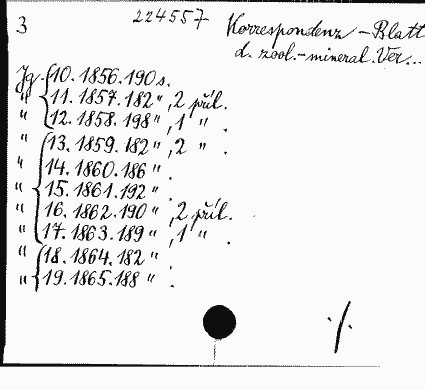 3 224557 Korrespondenz-Blatt
d. zool.-mineral.Ver...
Jg. 10. 1856. 190 s.
" 11. 1857. 182 ", 2 příl.
" 12. 1858. 198 ", 1 " .
" 13. 1859. 182 ", 2 " .
" 14. 1860. 186 " .
" 15. 1861. 192 " .
" 16. 1862. 190 ", 2 příl.
" 17. 1863. 189 ", 1 " .
" 18. 1864. 182 " .
" 19. 1865. 188 " .
·/.